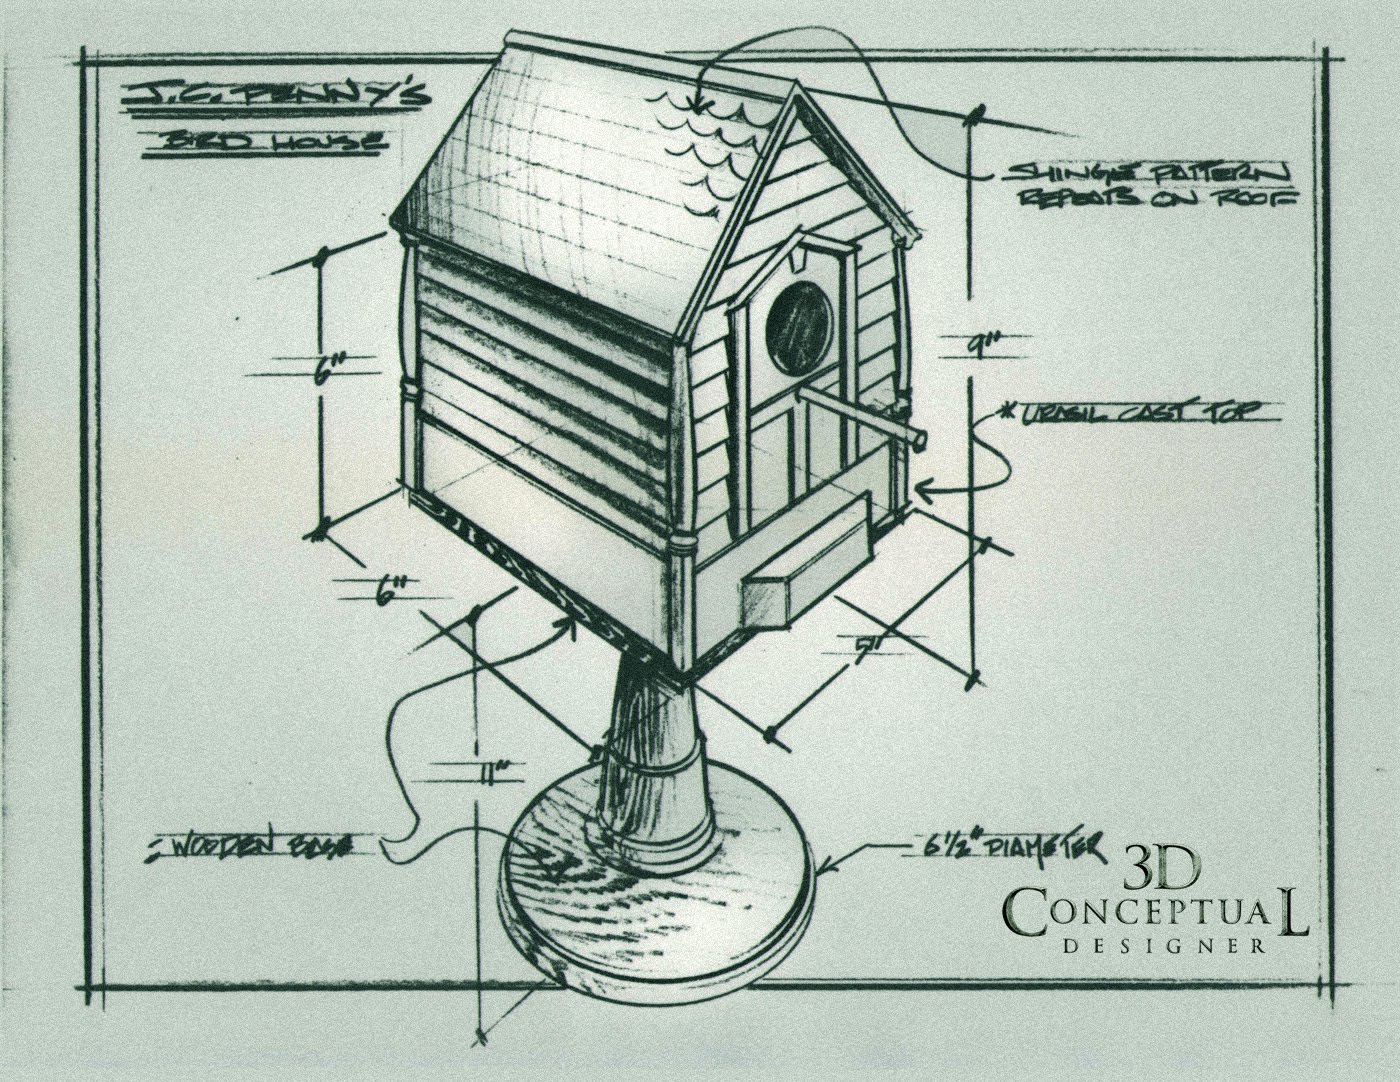 J.C. PENNY'S
BIRD HOUSE
SHINGLE PATTERN
REPEATS ON ROOF
6"
9"
* CAST TOP
6"
5"
11"
WOODEN BASE
6 1/2" DIAMETER
3D
CONCEPTUAL
DESIGNER